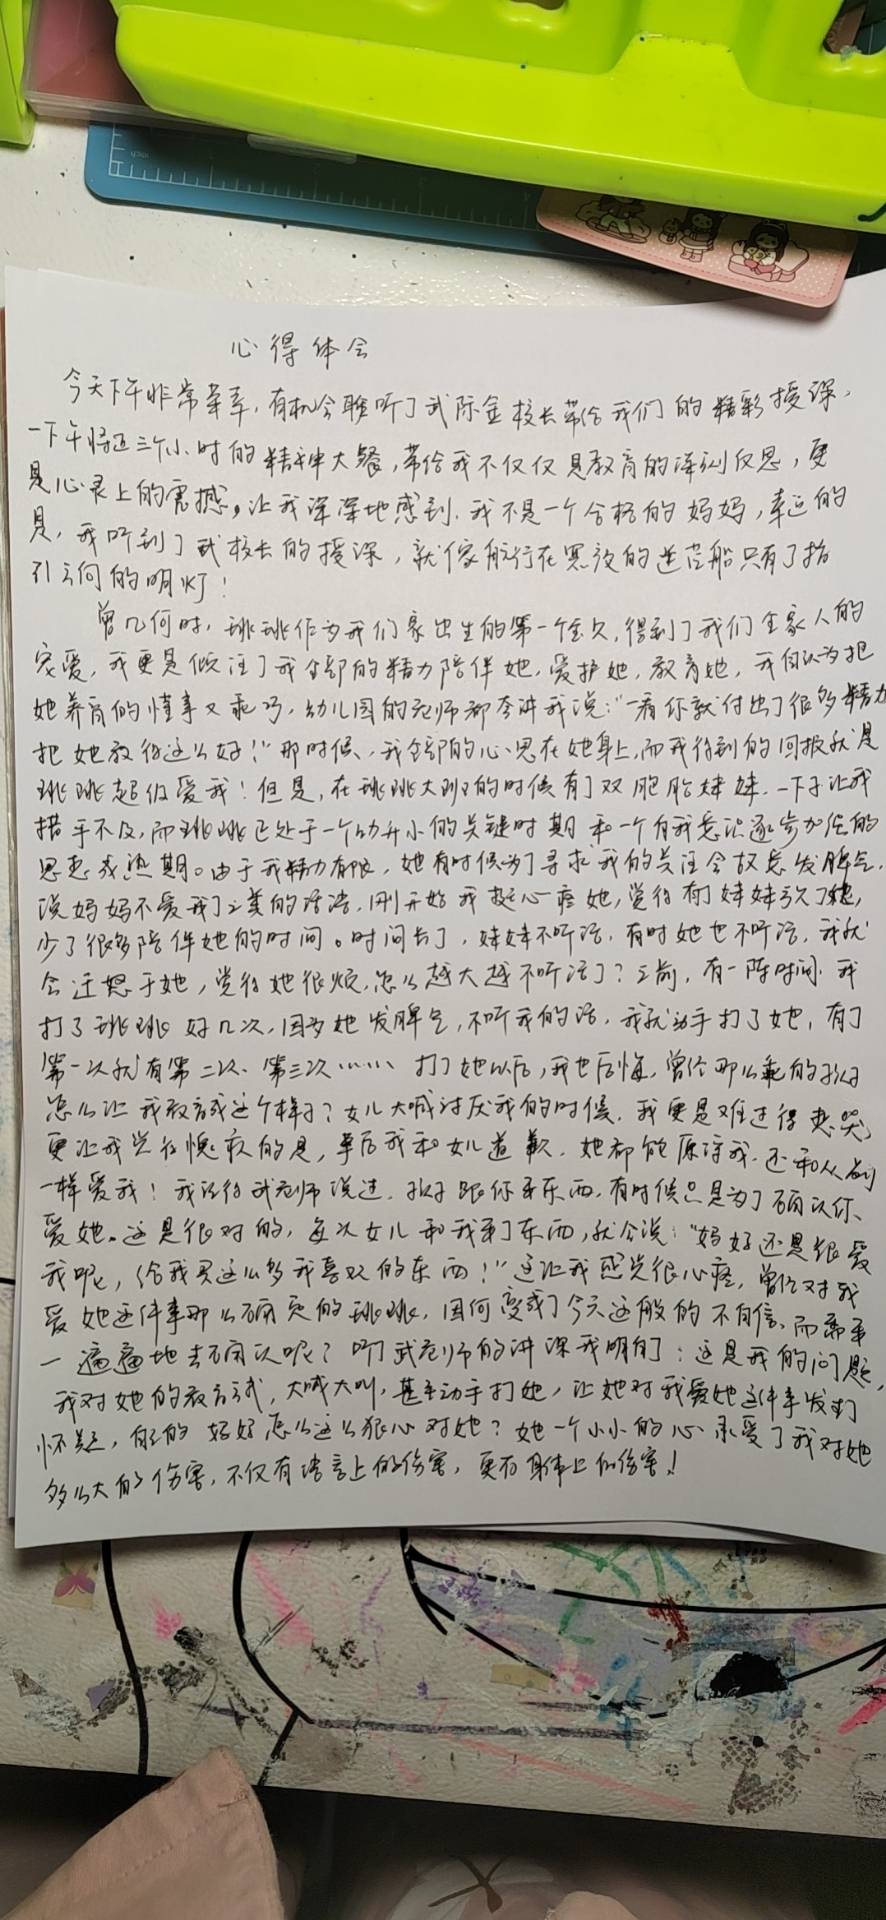 心得体会
今天下午非常荣幸，有机会聆听了武际金校长带给我们的精彩授课，
一下午将近三个小时的精神大餐，带给我不仅仅是教育的深刻反思，更
是心灵上的震撼，让我深深地感到，我不是一个合格的妈妈，幸运的
是，我听到了武校长的授课，就像航行在黑夜的迷茫船只有了指
引方向的明灯！
曾几何时，跳跳作为我们家出生的第一个宝贝，得到了我们全家人的
宠爱，我更是倾注了我全部的精力陪伴她，爱护她，教育她，我自认为把
她养育的懂事又乖巧，幼儿园的老师都夸讲我说：“一看你就付出了很多精力
把她教得这么好！”那时候，我全部的心思在她身上，而我得到的回报就是
跳跳超级爱我！但是，在跳跳大班的时候有了双胞胎妹妹，一下子让我
措手不及，而跳跳正处于一个幼升小的关键时期和一个自我意识逐步加强的
思想成熟期。由于我精力有限，她有时候为了寻求我的关注会故意发脾气，
说妈妈不爱我了之类的话语，刚开始我挺心疼她，觉得有了妹妹亏欠了她，
少了很多陪伴她的时间。时间长了，妹妹不听话，有时她也不听话，我就
会迁怒于她，觉得她很烦，怎么越大越不听话了？之前，有一阵时间我
打了跳跳好几次，因为她发脾气，不听我的话，我就动手打了她，有了
第一次就有第二次、第三次…… 打了她以后，我也后悔，曾经那么乖的孩子
怎么让我教育成这个样子？女儿大喊讨厌我的时候，我更是难过得想哭，
更让我觉得愧疚的是，事后我和女儿道歉，她都能原谅我，还和从前
一样爱我！我记得武老师说过，孩子跟你要东西，有时候只是为了确认你
爱她。这是很对的，每次女儿和我买了东西，就会说：“妈妈还是很爱
我呢，给我买这么多我喜欢的东西！”这让我感觉很心疼，曾经对我
爱她这件事那么确定的跳跳，因何变成了今天这般的不自信，而需要
一遍遍地去确认呢？听了武老师的讲课我明白了：这是我的问题，
我对她的教育方式，大喊大叫，甚至动手打她，让她对我爱她这件事发生了
怀疑，自己的妈妈怎么这么狠心对她？她一个小小的心承受了我对她
多么大的伤害，不仅有语言上的伤害，更有身体上的伤害！